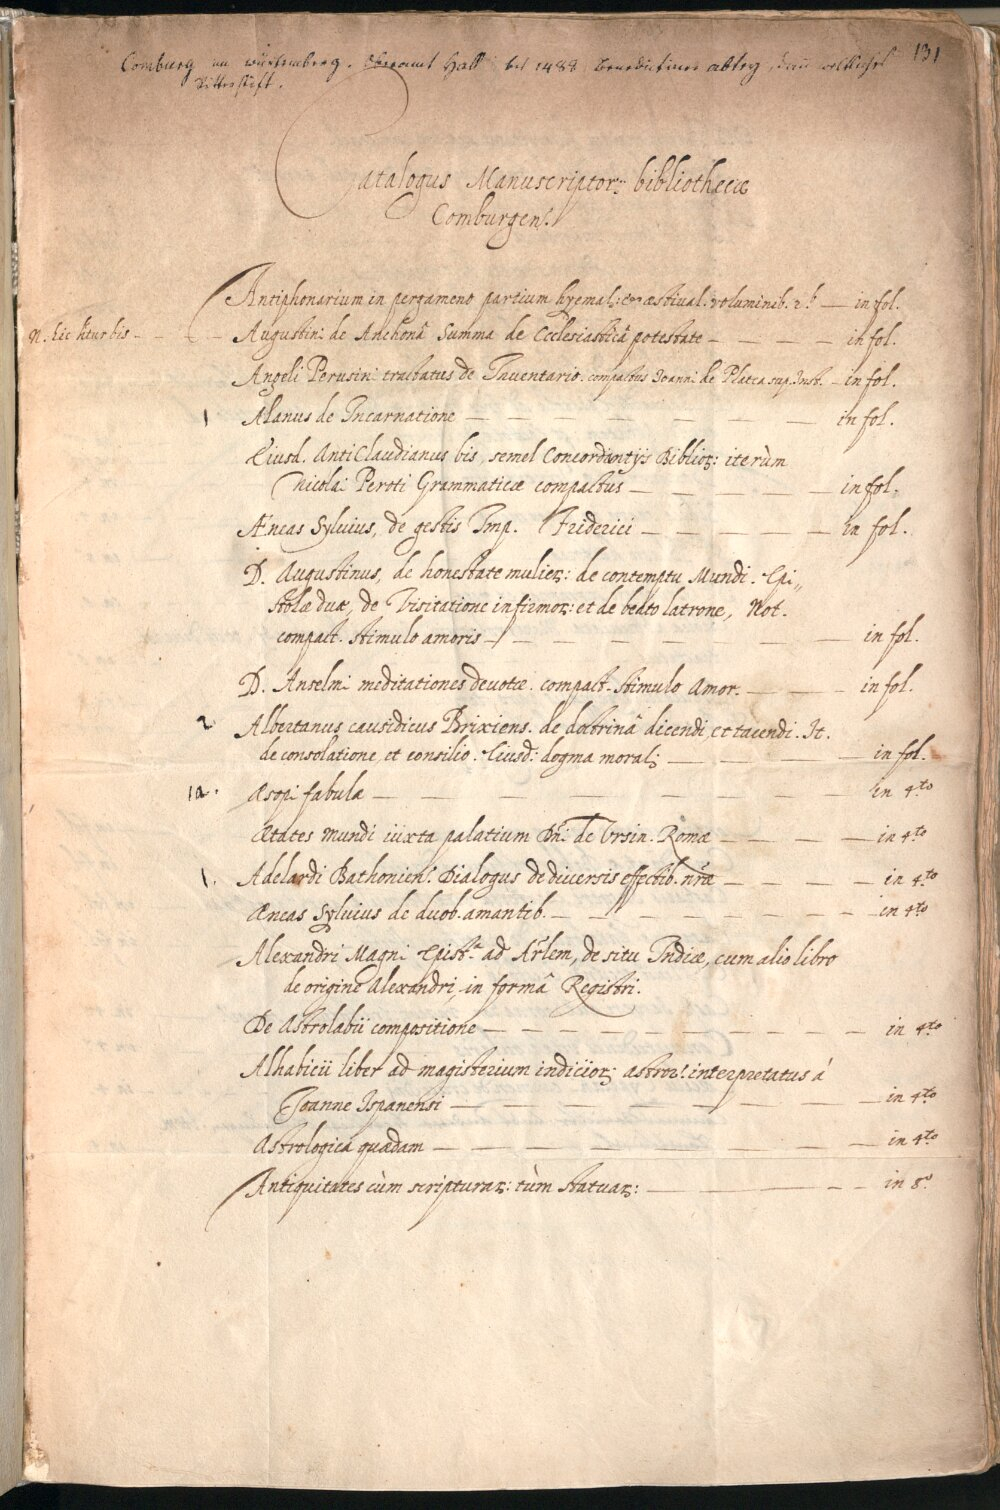 131
Comburg im würtemberg. Oberamt Hall bis 1488 Benedictiner abtey, dann weltliches
Ritterstift.
Catalogus Manuscriptor: bibliothecæ
Comburgens.
Antiphonarium in pergameno partium hyemal: et æstival. voluminib. 2b. — in fol.
N. hic h'tur bis - Augustini de Anchonâ Summa de Ecclesiasticâ potestate — in fol.
Angeli Perusini tractatus de Inventario. compactus Joanni de Platea sup. Inst. — in fol.
1 Alanus de Incarnatione — in fol.
Eiusd. AntiClaudianus bis, semel Concordantijs Biblior: iterùm
Nicolai Peroti Grammaticæ compactus — in fol.
Æneas Sylvius, de gestis Imp. Friderici — in fol.
D. Augustinus, de honestate mulier: de contemptu Mundi. Epi„
stolæ duæ, de Visitatione infirmor: et de beato latrone, Not.
compact. stimulo amoris — in fol.
D. Anselmi meditationes devotæ. compact. stimulo Amor. — in fol.
2 Albertanus causidicus Brixiens. de doctrinâ dicendi et tacendi. It.
de consolatione et consilio. Eiusd: dogma moral: — in fol.
1a. Æsopi fabulæ — in 4to
Ætates mundi iuxta palatium Dni de Ursin. Romæ — in 4to
1. Adelardi Bathoniens. Dialogus de diversis effectib. nræ — in 4to
Æneas Sylvius de duob. amantib. — in 4to
Alexandri Magni Epistla ad Arlem, de situ Indiæ, cum alio libro
de origine Alexandri, in formâ Registri.
De Astrolabii compositione — in 4to
Alhabicii liber ad magisterium iudicior: astror: interpretatus á
Joanne Ispanensi — in 4to
Astrologica quædam — in 4to
Antiquitates cùm scripturar: tùm statuar: — in 8o